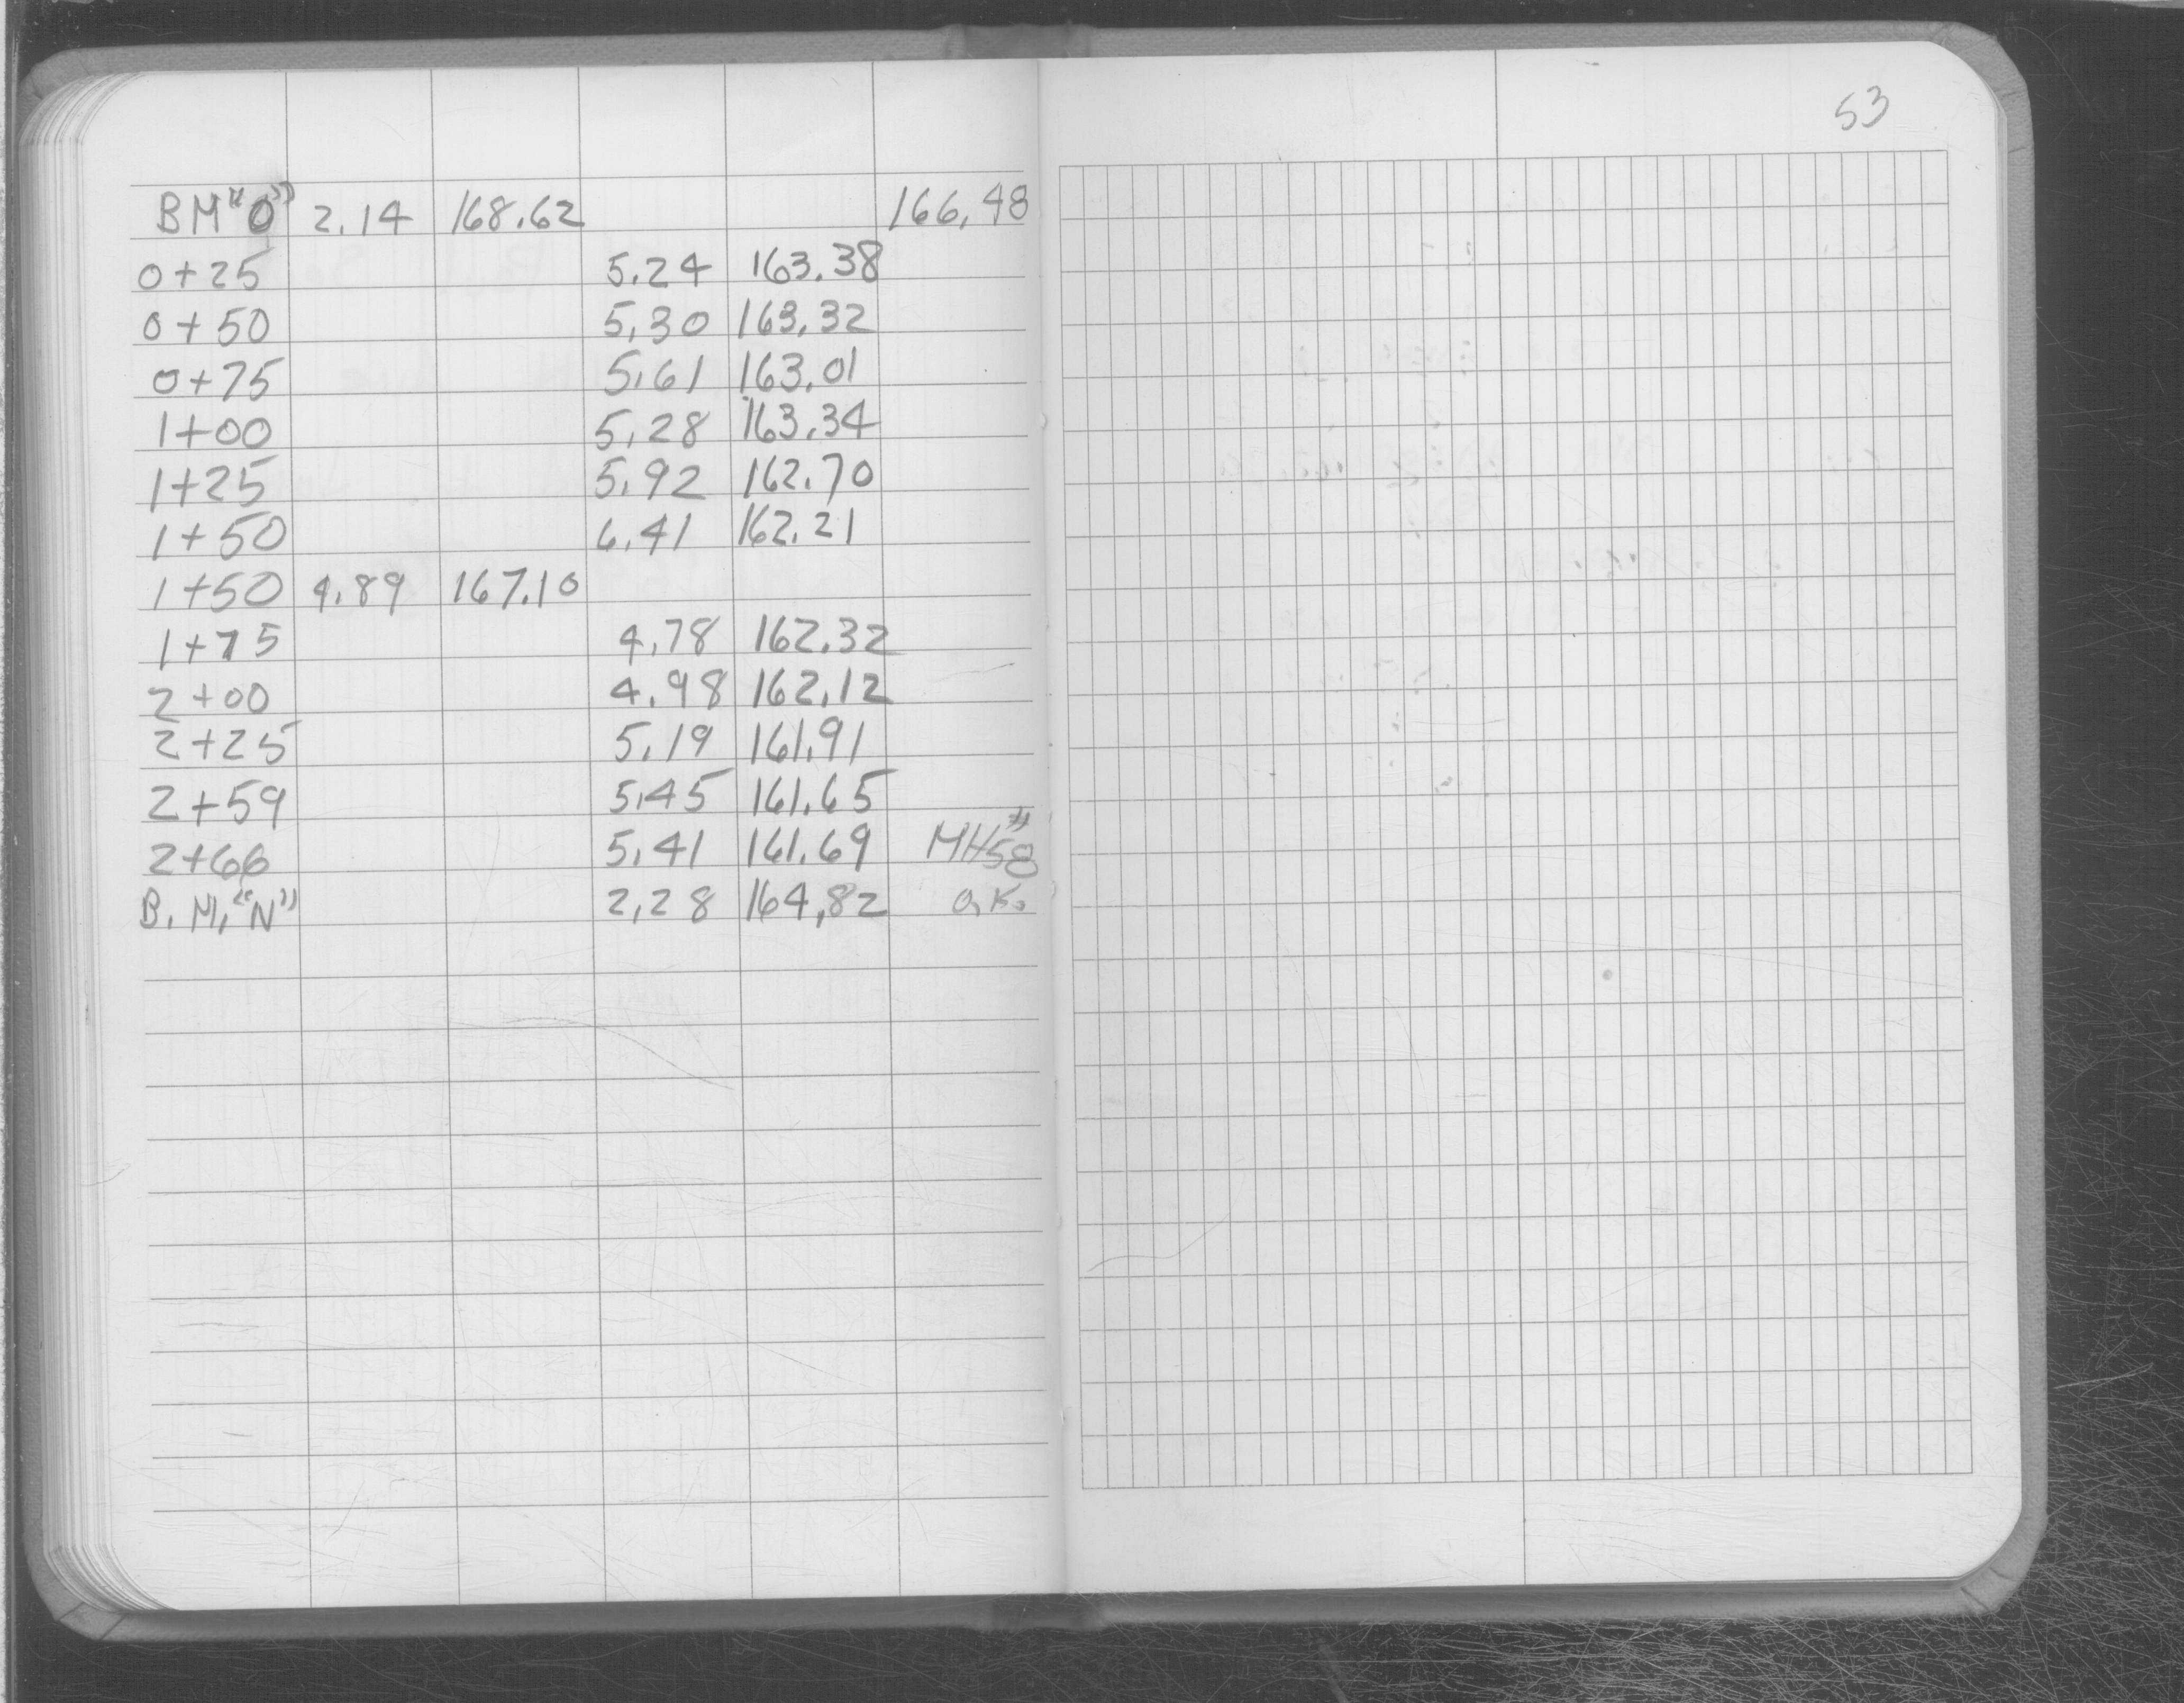 53
BM "O" 2.14 168.62 166.48
0+25 5.24 163.38
0+50 5.30 163.32
0+75 5.61 163.01
1+00 5.28 163.34
1+25 5.92 162.70
1+50 6.41 162.21
1+50 4.89 167.10
1+75 4.78 162.32
2+00 4.98 162.12
2+25 5.19 161.91
2+59 5.45 161.65
2+66 5.41 161.69 MH#58
B.M. "N" 2.28 164.82 O.K.